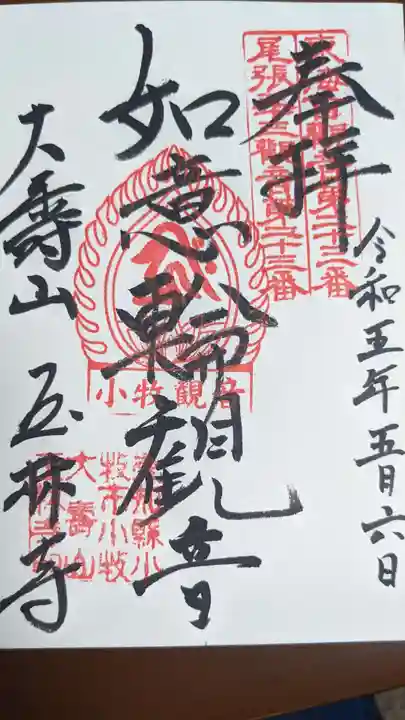 奉拝
令和五年五月六日
尾張三十三観音第二十三番
如意輪観音
小牧観音
大壽山 玉林寺
愛知縣小
牧市小牧
大壽山